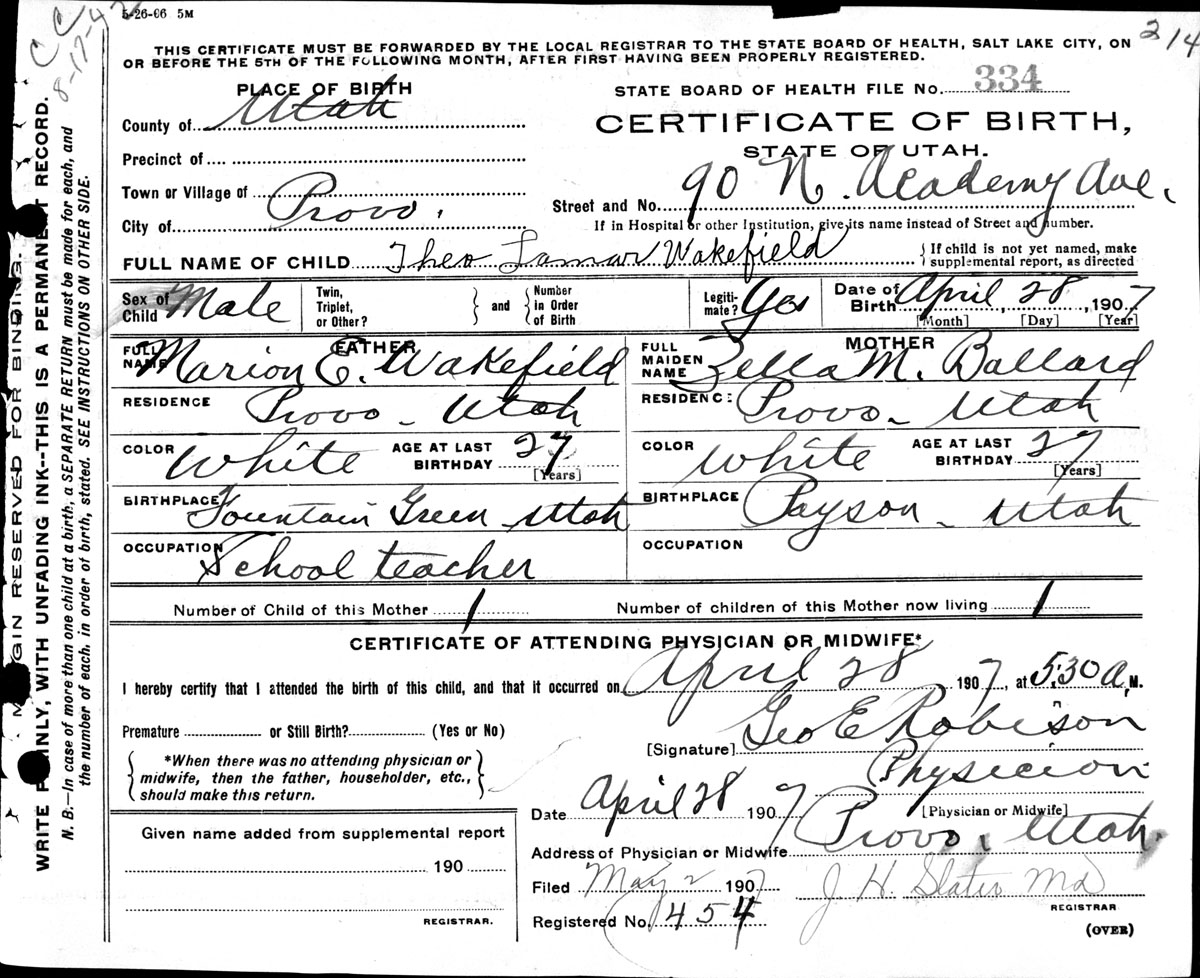 5-26-06 5M
C C
8-17-42
214
THIS CERTIFICATE MUST BE FORWARDED BY THE LOCAL REGISTRAR TO THE STATE BOARD OF HEALTH, SALT LAKE CITY, ON
OR BEFORE THE 5TH OF THE FOLLOWING MONTH, AFTER FIRST HAVING BEEN PROPERLY REGISTERED.
PLACE OF BIRTH
STATE BOARD OF HEALTH FILE No. 334
County of Utah
CERTIFICATE OF BIRTH,
STATE OF UTAH.
Precinct of
Town or Village of
Street and No. 90 N. Academy Ave.
City of Provo.
If in Hospital or other Institution, give its name instead of Street and number.
FULL NAME OF CHILD Theo Lamar Wakefield
{ If child is not yet named, make
supplemental report, as directed
Sex of Child Male
Twin, Triplet, or Other? } and { Number in Order of Birth
Legiti-mate? Yes
Date of Birth April 28, 1907
[Month] [Day] [Year]
FATHER
FULL NAME Marion E. Wakefield
RESIDENCE Provo - Utah
COLOR White AGE AT LAST BIRTHDAY 27
[Years]
BIRTHPLACE Fountain Green - Utah
OCCUPATION School teacher
MOTHER
FULL MAIDEN NAME Zella M. Ballard
RESIDENCE: Provo - Utah
COLOR White AGE AT LAST BIRTHDAY 27
[Years]
BIRTHPLACE Payson - Utah
OCCUPATION
Number of Child of this Mother 1 Number of children of this Mother now living 1
CERTIFICATE OF ATTENDING PHYSICIAN OR MIDWIFE*
I hereby certify that I attended the birth of this child, and that it occurred on April 28, 1907, at 5:30 A. M.
Premature or Still Birth? (Yes or No)
[Signature] Geo E Robison
{ *When there was no attending physician or
midwife, then the father, householder, etc., }
should make this return.
Physician
[Physician or Midwife]
Date April 28 1907
Address of Physician or Midwife Provo, Utah.
Given name added from supplemental report
190
REGISTRAR.
Filed May 2 1907 J. H. Slater Md
REGISTRAR
Registered No. 454
(OVER)
MARGIN RESERVED FOR BINDING.
WRITE PLAINLY, WITH UNFADING INK--THIS IS A PERMANENT RECORD.
N. B.—In case of more than one child at a birth, a SEPARATE RETURN must be made for each, and
the number of each, in order of birth, stated. SEE INSTRUCTIONS ON OTHER SIDE.